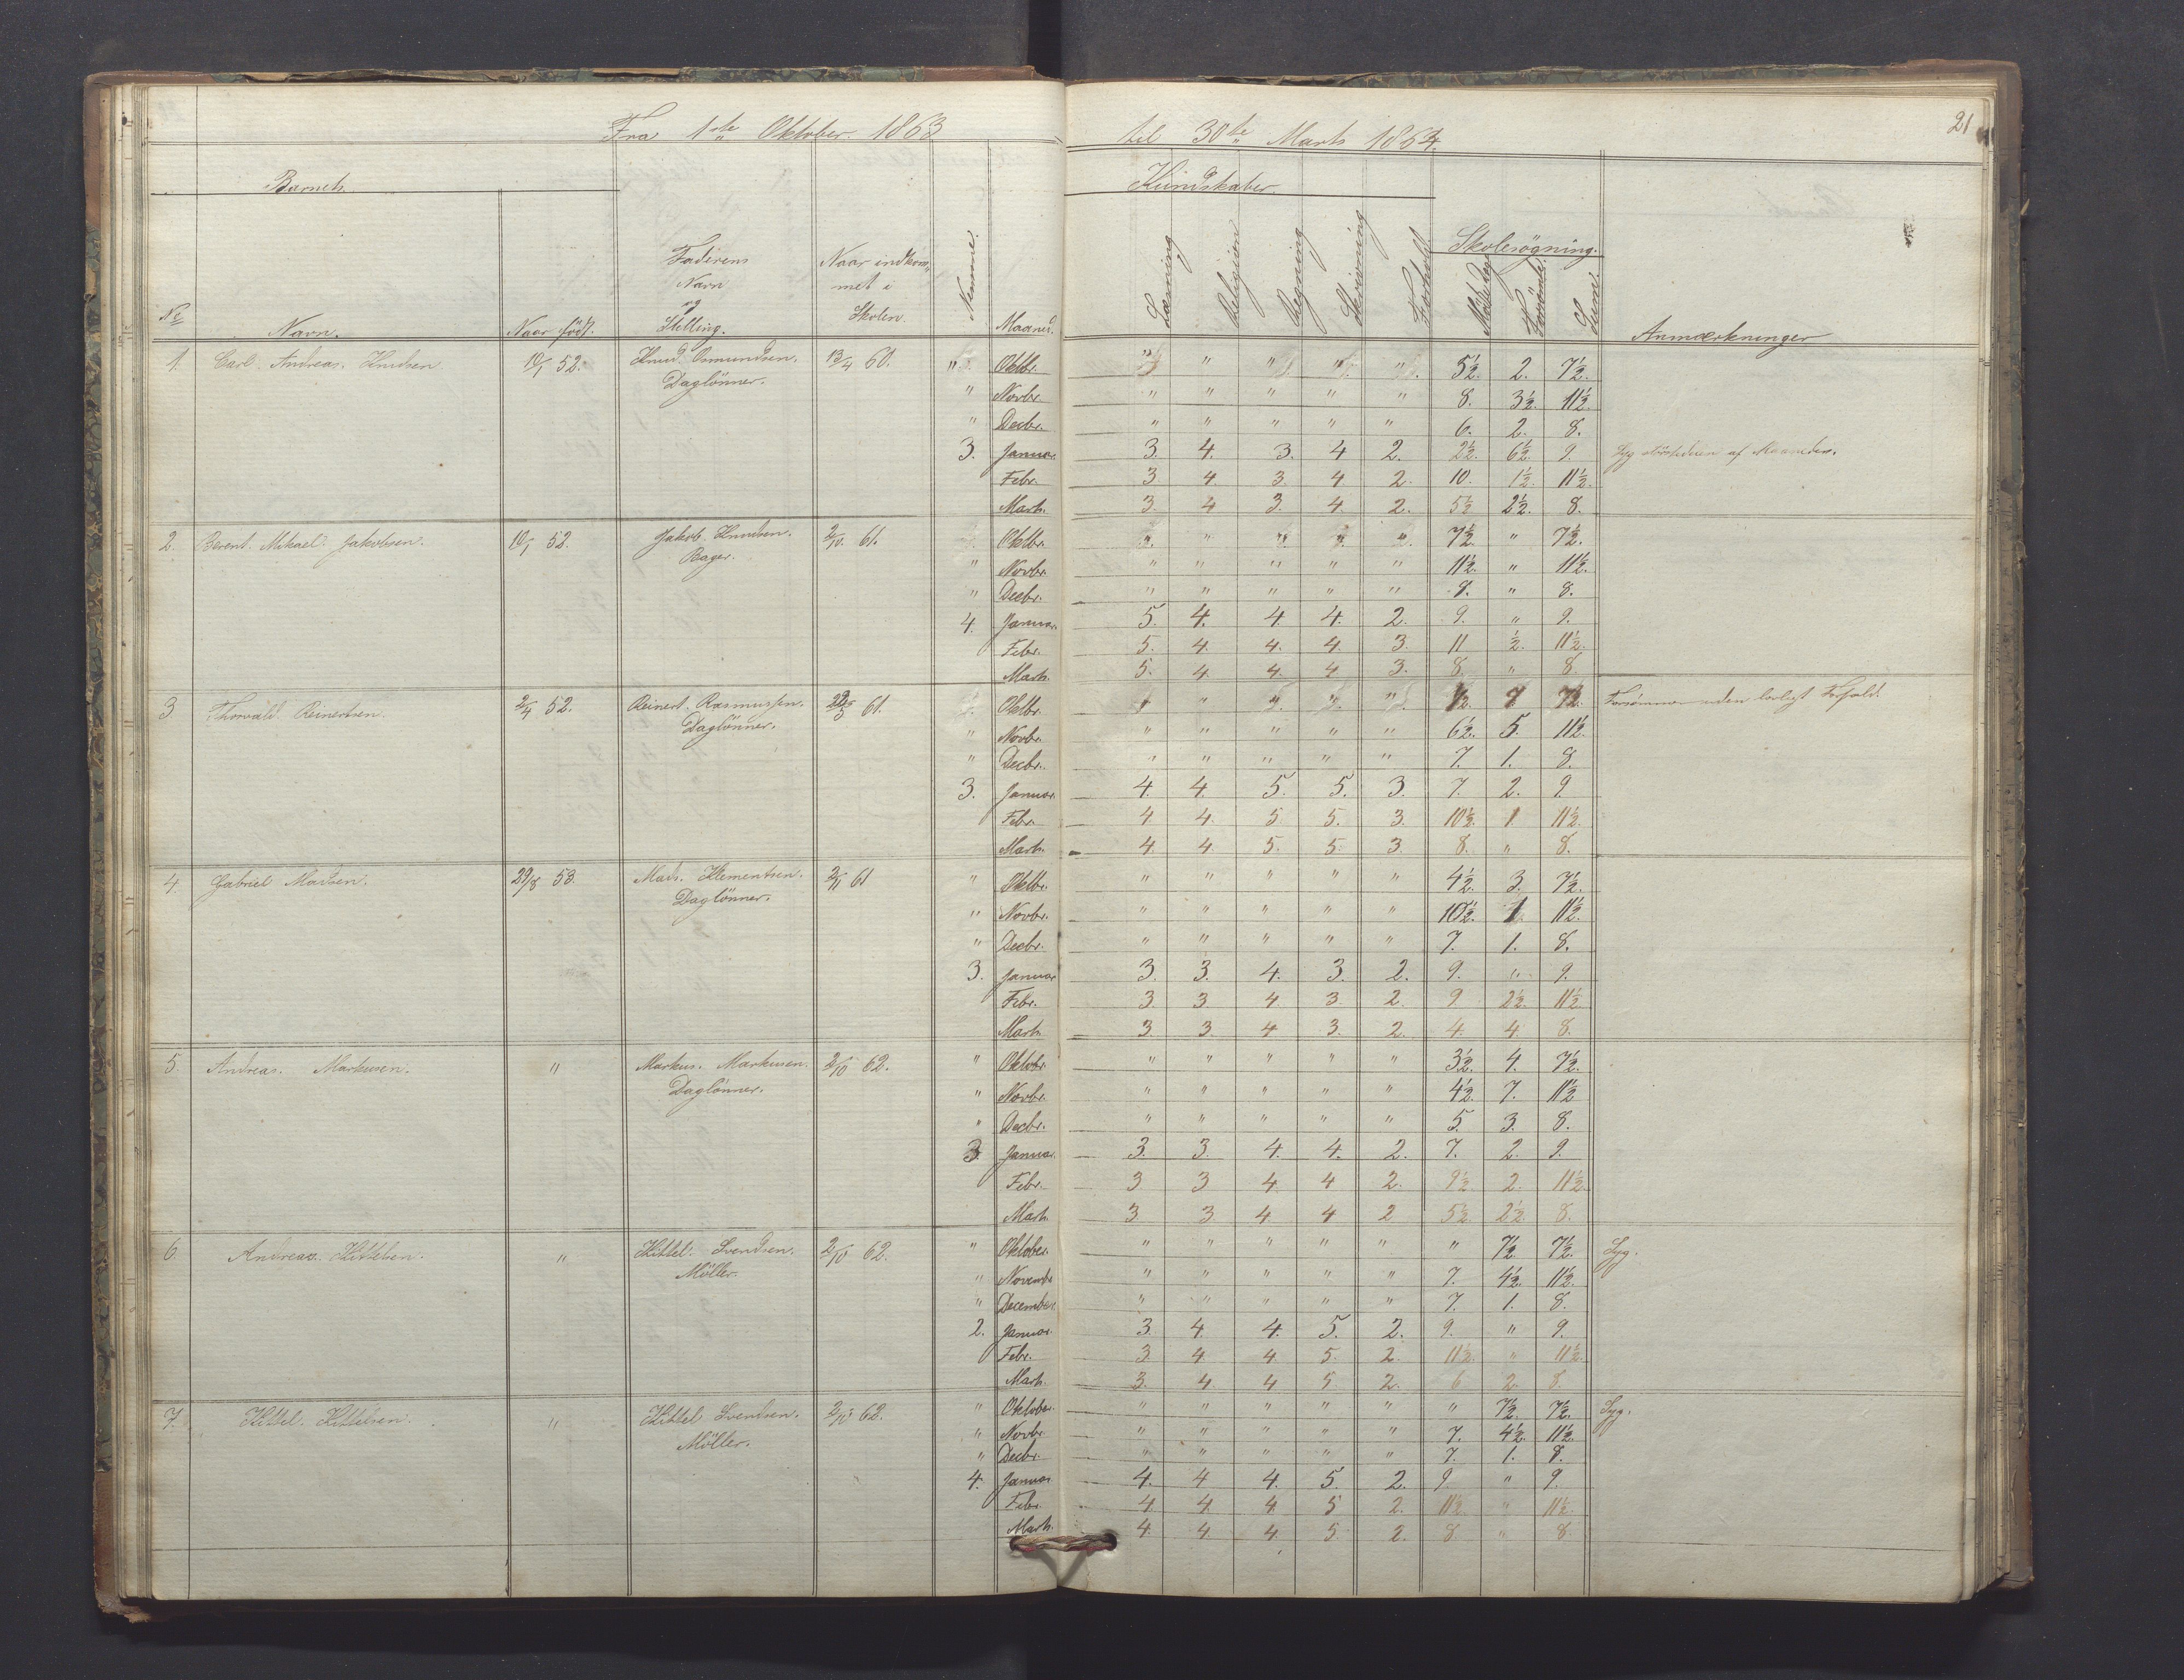 Fra 1ste Oktober. 1863 til 30te Marts 1864.
21
Barnets
Kundskaber.
Skolesøgning.
No
Navn.
Naar født.
Faderens Navn og Stilling.
Naar indkommet i Skolen.
Nemme.
Maaned.
Læsning
Religion
Regning
Skrivning
Forhold
Mødte Dage
Forsømte
Sum.
Anmærkninger
1. Carl. Andreas. Knudsen 10/1 52. Knud. Osmundsen. 13/4 60. " Oktbr. " " " " " 5½ 2. 7½.
Daglönner. " Novbr. " " " " " 8. 3½ 11½.
" Decbr. " " " " " 6. 2. 8.
3. Januar. 3. 4. 3. 4 2. 2½. 6½. 9. Syg störstedelen af Maaneden.
Febr. 3 4. 3. 4 2. 10. 1½. 11½.
Marts. 3. 4 3. 4. 2. 5½ 2½. 8.
2. Berent. Mikael. Jakobsen. 10/1 52. Jakob. Knudsen. 2/10. 61. Oktbr. " " " " " 7½. " 7½.
Bager. " Novbr. " " " " " 11½. " 11½.
" Decbr. " " " " " 8. " 8.
4. Januar. 5. 4. 4 4. 2. 9. " 9.
Febr. 5. 4. 4. 4. 3. 11 ½. 11½.
Marts. 5. 4 4. 4 3. 8. " 8
3 Thorvald. Reinertsen. 2/4 52. Reinert. Rasmussen. 61. Oktbr. " " " " ½. 7. 7½. Forsömmer uden lovligt Forfald.
Daglönner. " Novbr. " " " " " 6½. 5. 11½.
" Decbr. " " " " " 7. 1. 8.
3. Januar. 4. 4. 5. 5. 3. 7. 2. 9.
Febr. 4 4. 5 5. 3. 10½. 1. 11½.
Marts. 4. 4 5. 5 3. 8. " 8.
4. Gabriel Madsen. 29/8 53. Mads. Klementsen. 2/11 61 " Oktbr. " " " " " 4½. 3. 7½.
Daglönner. " Novbr. " " " " " 10½. 1 11½.
" Decbr. " " " " " 7. 1. 8.
3. Januar 3 3. 4. 3. 2. 9. " 9.
Febr. 3 3 4 3. 2. 9 2½. 11½
Marts 3 3 4 3. 2. 4. 4 8.
5. Andreas. Markusen. " Markus. Markusen. 2/10 62. " Oktobr. " " " " " 3½. 4. 7½.
Daglönner. " Novbr. " " " " " 4½. 7. 11½
" Decbr. " " " " " 5. 3. 8.
3. Januar. 3. 3. 4. 4. 2. 7. 2. 9.
Febr. 3 3 4 4 2. 9½ 2. 11½.
Marts 3 3 4 4 2 5½ 2½. 8.
6. Andreas. Kittelsen. " Kittel. Svendsen. 2/10 62. " Oktober. " " " " " " 7½. 7½. Syg.
Möller. " Novembr " " " " " 7. 4½. 11½.
" December. " " " " " 7. 1. 8.
2. Januar. 3. 4 4. 5. 2. 9. " 9.
Febr. 3. 4. 4 5. 2. 11½. " 11½.
Marts. 3. 4 4 5 2. 6 2. 8.
7. Kittel. Kittelsen. " Kittel Svendsen. 2/10 62. " Oktober. " " " " " " 7½. 7½. Syg.
Möller. " Novbr. " " " " " 7. 4½. 11½.
" Decbr. " " " " " 7. 1. 8.
4. Januar 4. 4 4. 5. 2. 9 " 9.
Febr. 4 4. 4 5 2. 11½. " 11½.
Marts. 4. 4. 4. 5. 2. 8. " 8.